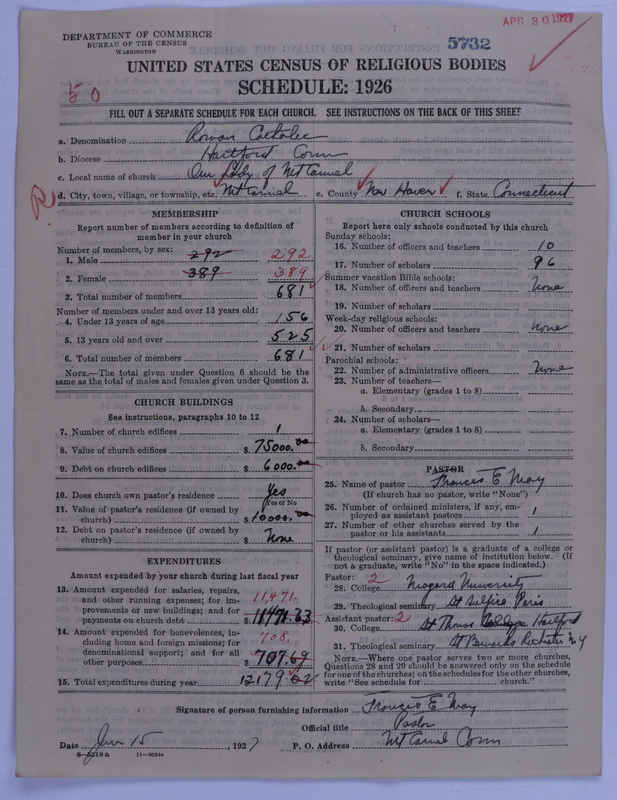 DEPARTMENT OF COMMERCE
BUREAU OF THE CENSUS
WASHINGTON
APR 30 1927
5732
UNITED STATES CENSUS OF RELIGIOUS BODIES
SCHEDULE: 1926
50
FILL OUT A SEPARATE SCHEDULE FOR EACH CHURCH. SEE INSTRUCTIONS ON THE BACK OF THIS SHEET
a. Denomination Roman Catholic
b. Diocese Hartford Conn
c. Local name of church Our Lady of Mt Carmel
d. City, town, village, or township, etc. Mt Carmel e. County New Haven f. State Connecticut
R
MEMBERSHIP
Report number of members according to definition of
member in your church
Number of members, by sex:
1. Male 292 292
2. Female 389 389
3. Total number of members 681
Number of members under and over 13 years old:
4. Under 13 years of age 156
5. 13 years old and over 525
6. Total number of members 681
NOTE.—The total given under Question 6 should be the
same as the total of males and females given under Question 3.
CHURCH BUILDINGS
See instructions, paragraphs 10 to 12
7. Number of church edifices 1
8. Value of church edifices $ 75000.00
9. Debt on church edifices $ 6000.00
10. Does church own pastor's residence Yes
Yes or No
11. Value of pastor's residence (if owned by
church) $ 10000.00
12. Debt on pastor's residence (if owned by
church) $ None
EXPENDITURES
Amount expended by your church during last fiscal year
13. Amount expended for salaries, repairs,
and other running expenses; for im-
provements or new buildings; and for
payments on church debt 11471. $ 11471.33
14. Amount expended for benevolences, in-
cluding home and foreign missions; for
denominational support; and for all
other purposes 708. $ 707.69
15. Total expenditures during year 12179.02
CHURCH SCHOOLS
Report here only schools conducted by this church
Sunday schools:
16. Number of officers and teachers 10
17. Number of scholars 96
Summer vacation Bible schools:
18. Number of officers and teachers None
19. Number of scholars
Week-day religious schools:
20. Number of officers and teachers None
21. Number of scholars
Parochial schools:
22. Number of administrative officers None
23. Number of teachers—
a. Elementary (grades 1 to 8)
b. Secondary
24. Number of scholars—
a. Elementary (grades 1 to 8)
b. Secondary
PASTOR
25. Name of pastor Francis E May
(If church has no pastor, write "None")
26. Number of ordained ministers, if any, em-
ployed as assistant pastors 1
27. Number of other churches served by the
pastor or his assistants 1
If pastor (or assistant pastor) is a graduate of a college or
theological seminary, give name of institution below. (If
not a graduate, write "No" in the space indicated.)
Pastor: 2
28. College Niagara University
29. Theological seminary St Sulpice Paris
Assistant pastor: 2
30. College St Thomas Hartford
31. Theological seminary St Bernards Rochester N Y
NOTE.—Where one pastor serves two or more churches,
Questions 28 and 29 should be answered only on the schedule
for one of the churches; on the schedules for the other churches,
write "See schedule for church."
Signature of person furnishing information Francis E May
Official title Pastor
Date Jan 15, 1927 P. O. Address Mt Carmel Conn
8—5218 a 11—9054a